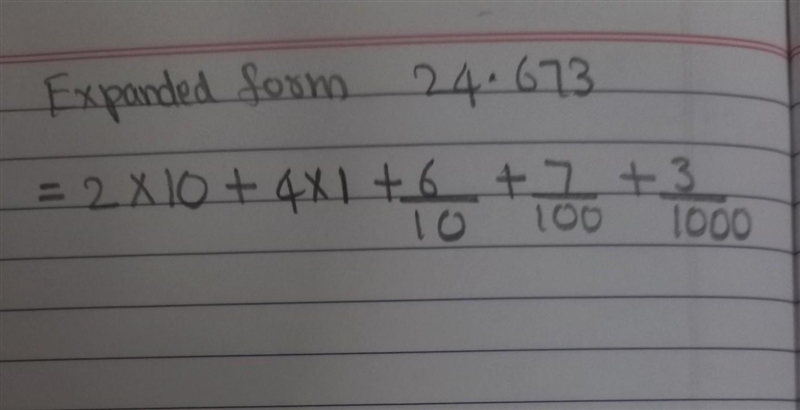 Expanded form 24.673
= 2 × 10 + 4 × 1 + 6/10 + 7/100 + 3/1000